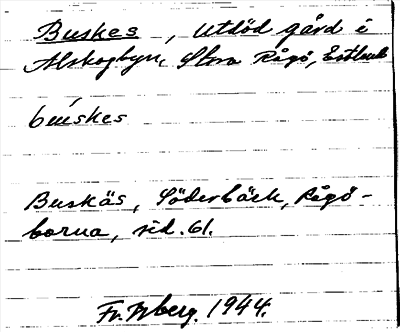 Buskes, utdöd gård i
Alskogbyn, Stora Rågö, Estland
búskes
Buskäs, Söderbäck, Rågö-
borna, sid. 61.
Fr. 1944.